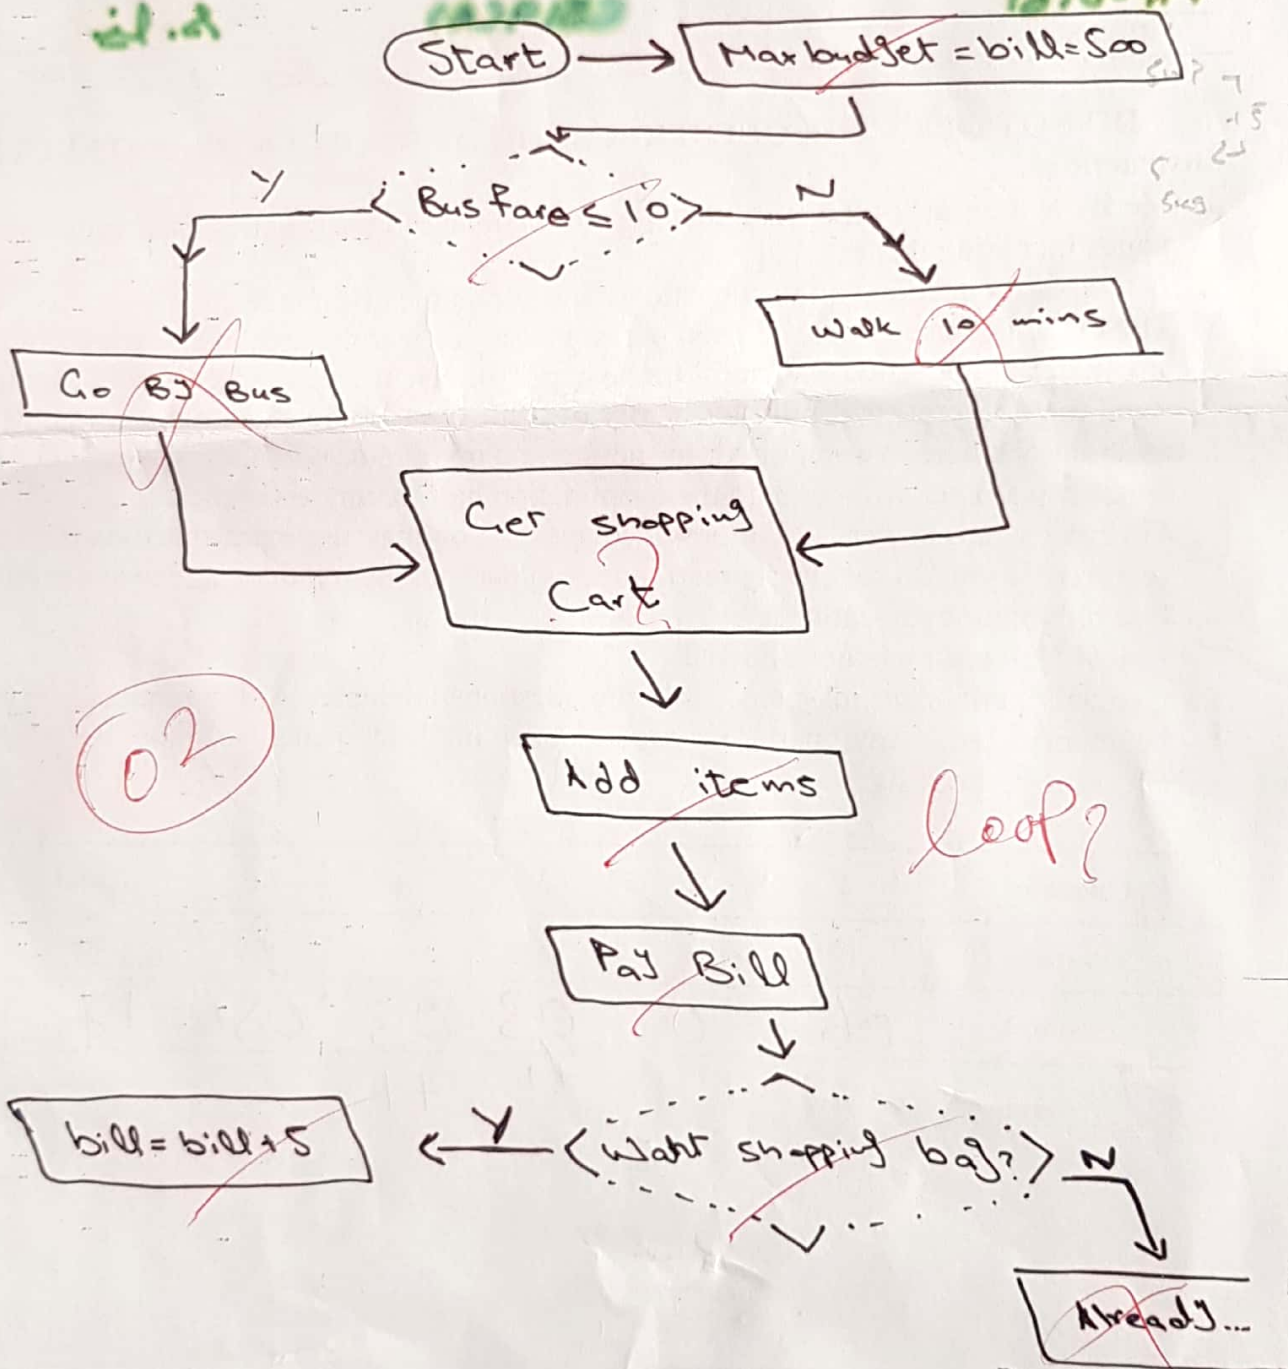 Start
Max budget = bill = 500
Y
Bus fare ≤ 10
N
Walk 10 mins
Go By Bus
Get shopping
Cart
02
Add items
loop?
Pay Bill
bill = bill + 5
Y
Want shopping bag?
N
Already...